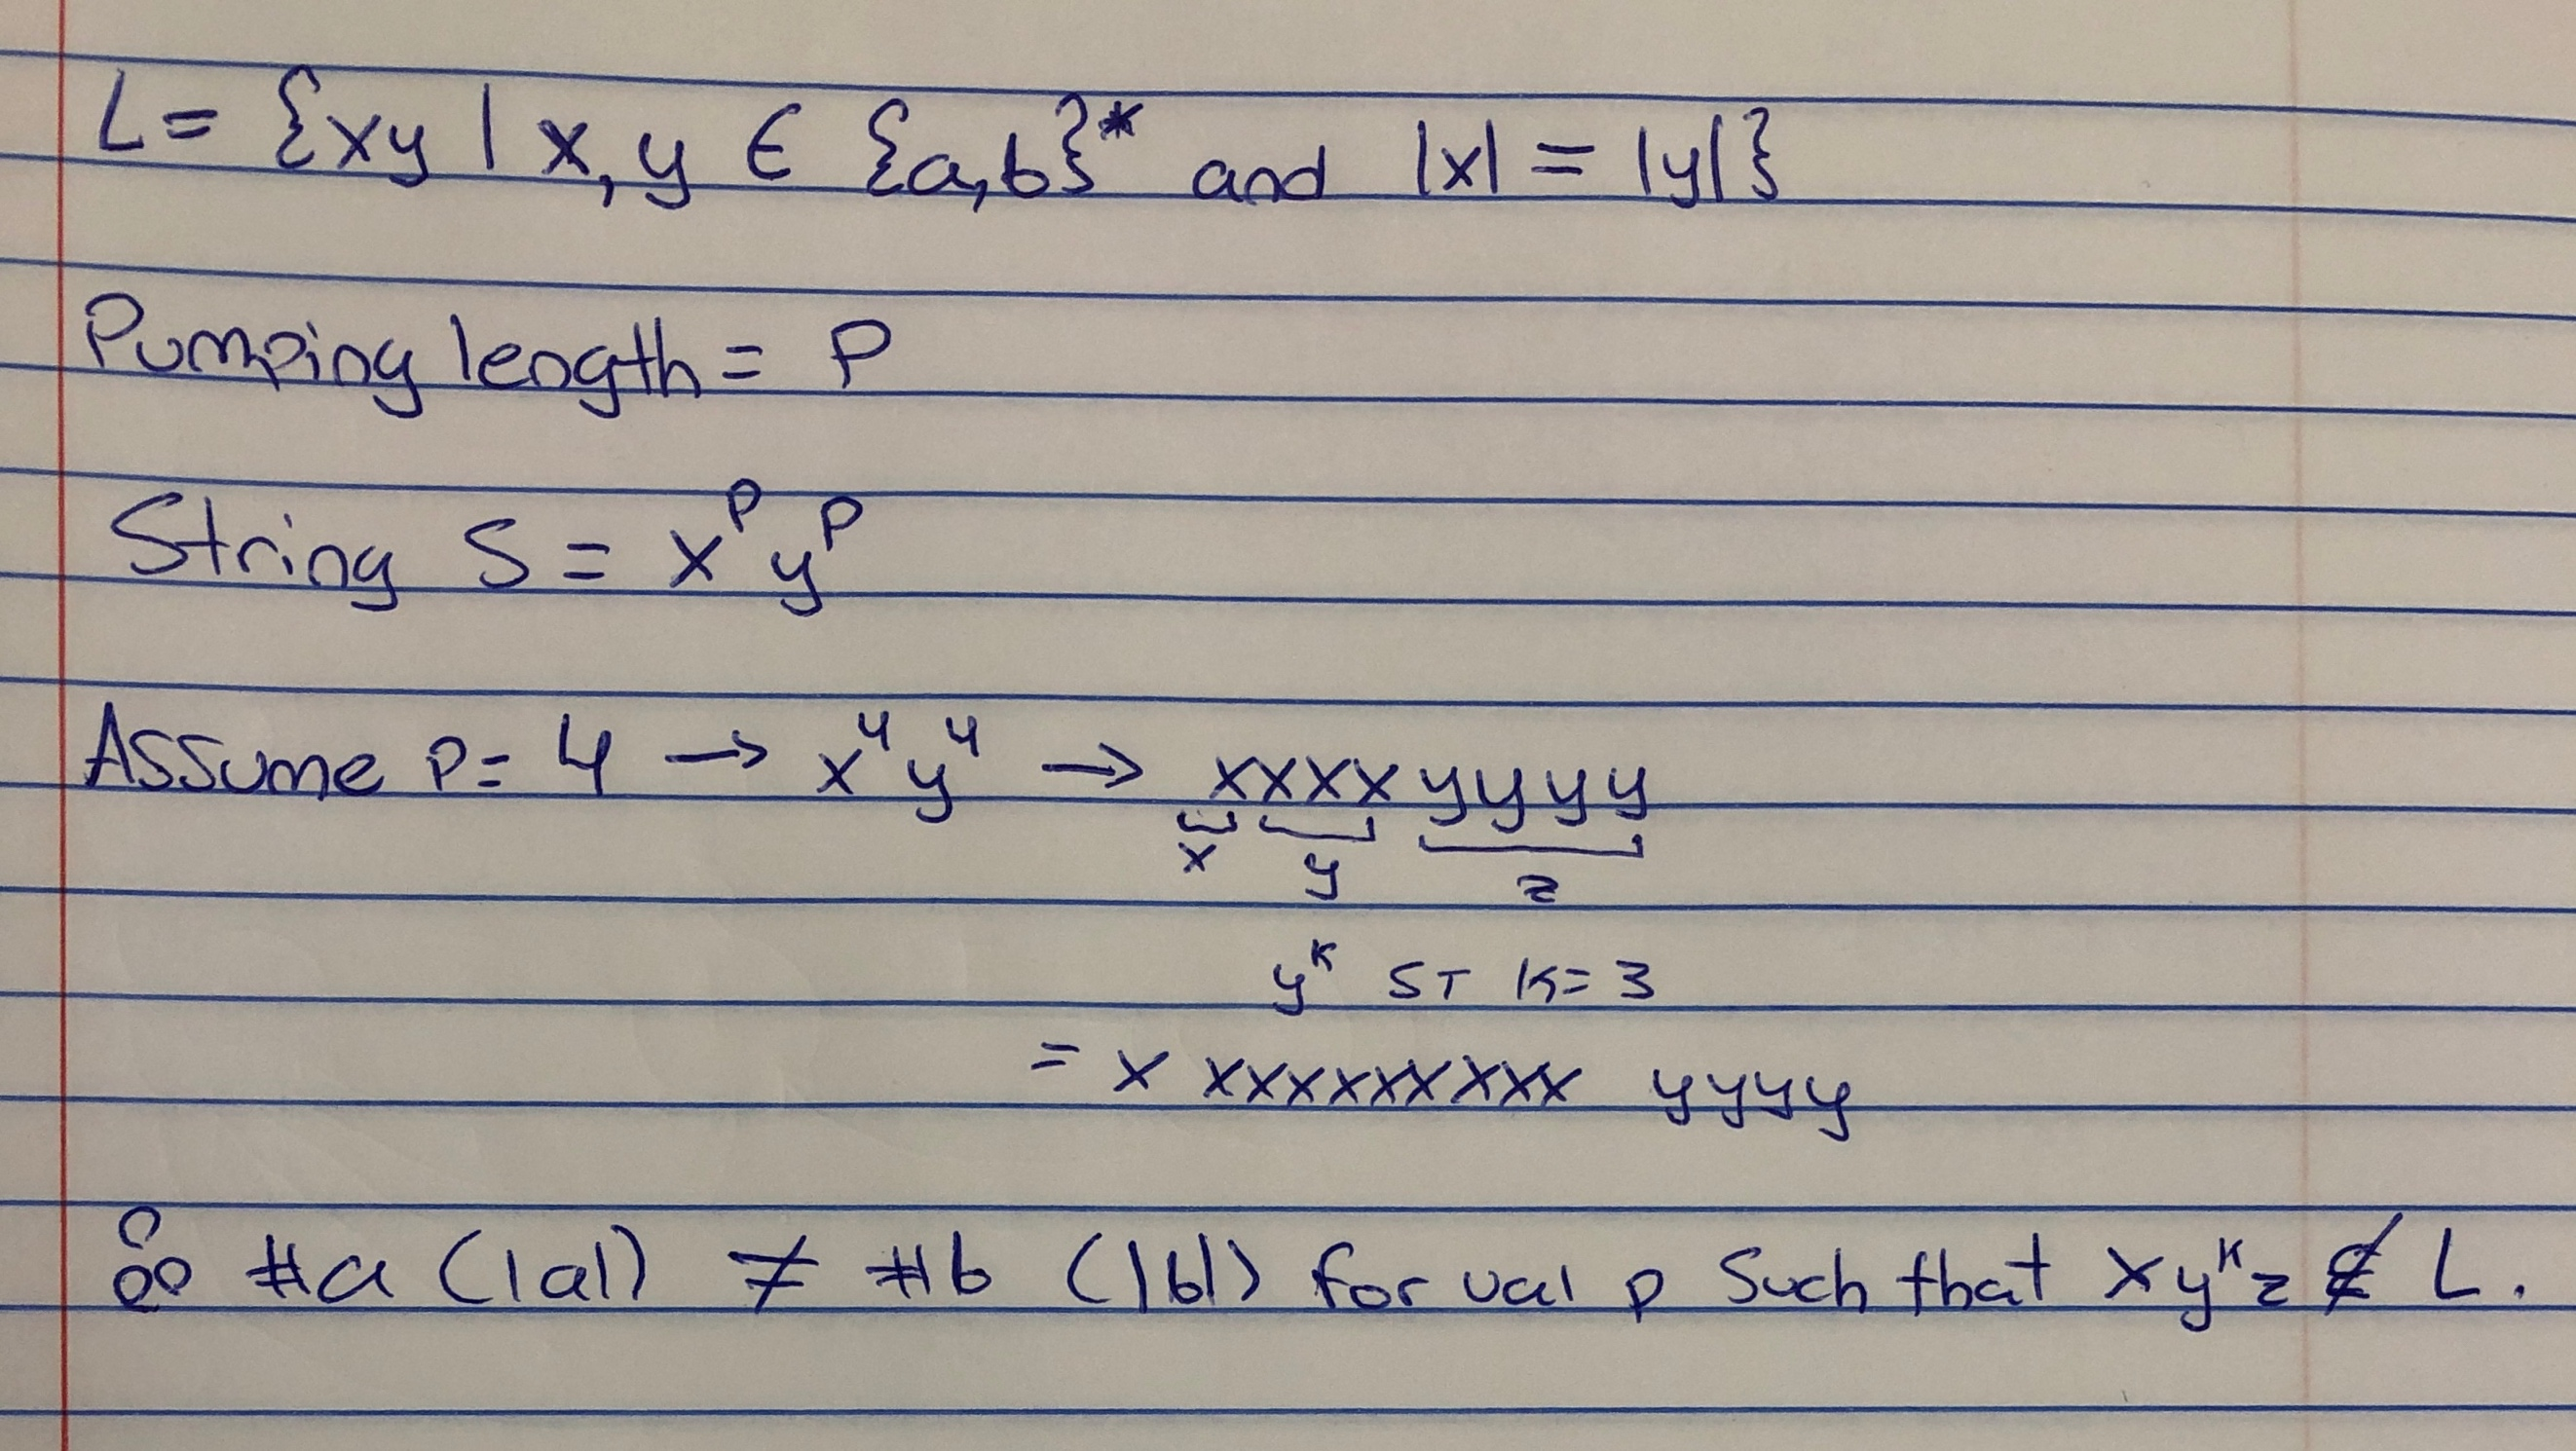 L = {xy | x, y ∈ {a,b}* and |x| = |y|}
Pumping length = P
String S = x^P y^P
Assume P = 4 → x^4 y^4 → xxxx yyyy
x y z
y^k ST K = 3
= x xxxxxxxxx yyyy
∴ #a (|a|) ≠ #b (|b|) for val p such that xy^kz ∉ L.